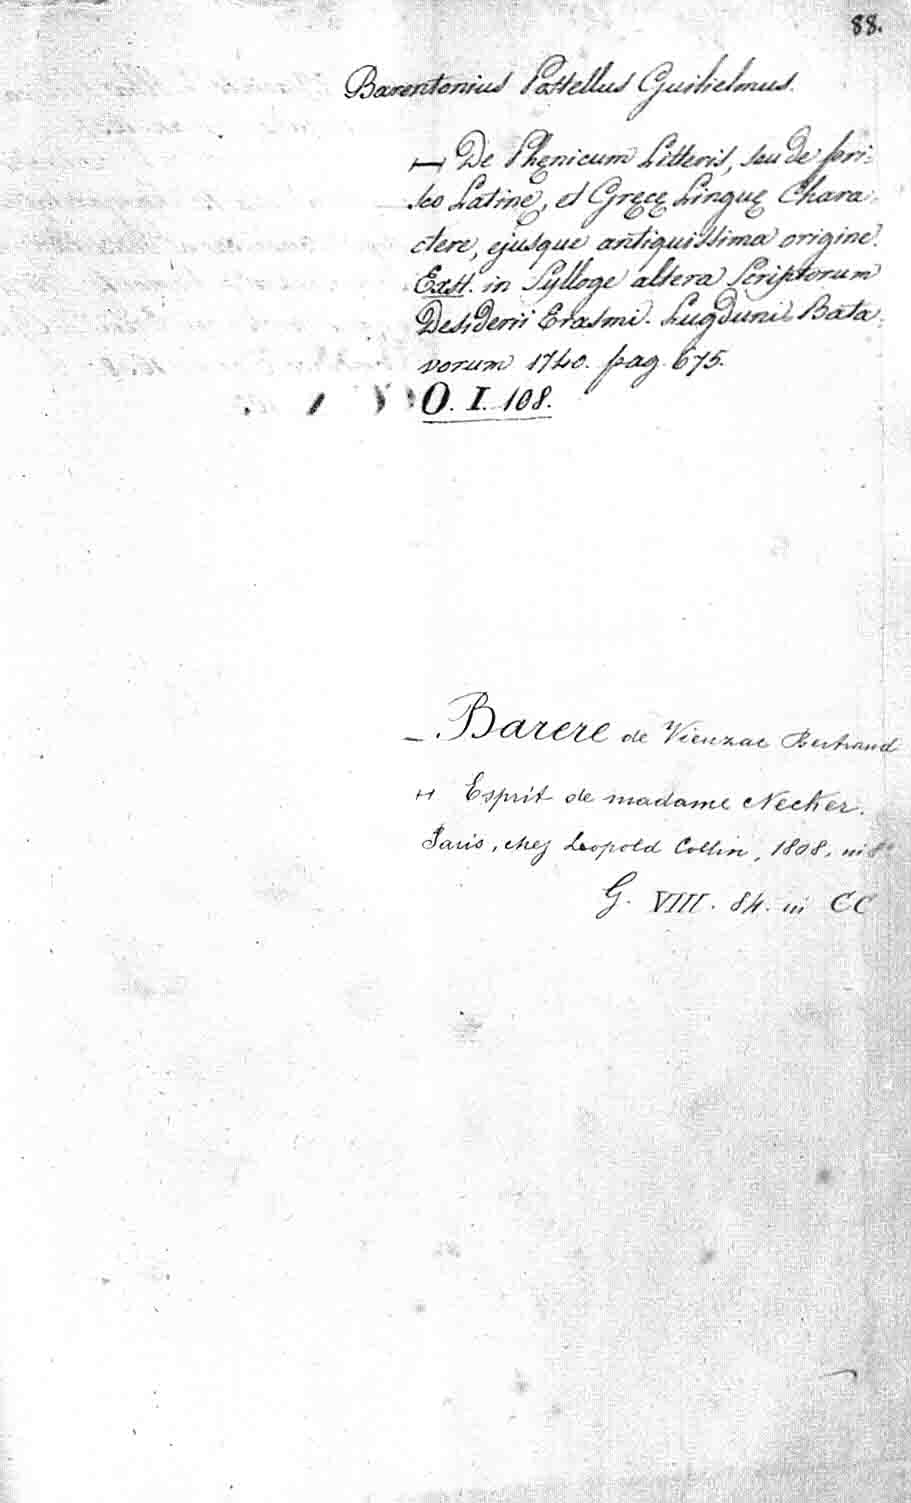 88.
Barentonius Postellus Guilielmus.
— De Phęnicum Litteris, seu de pri-
sco Latinę, et Gręcę Linguę Chara-
ctere, ejusque antiquissima origine.
Exst. in Sylloge altera Scriptorum
Desiderii Erasmi. Lugduni Bata-
vorum 1740. pag. 675.
O. I. 108.
— Barere de Vieuzac Bertrand
Esprit de madame Necker.
Paris, chez Leopold Collin, 1808. in 8º
G. VIII. 84. in CC